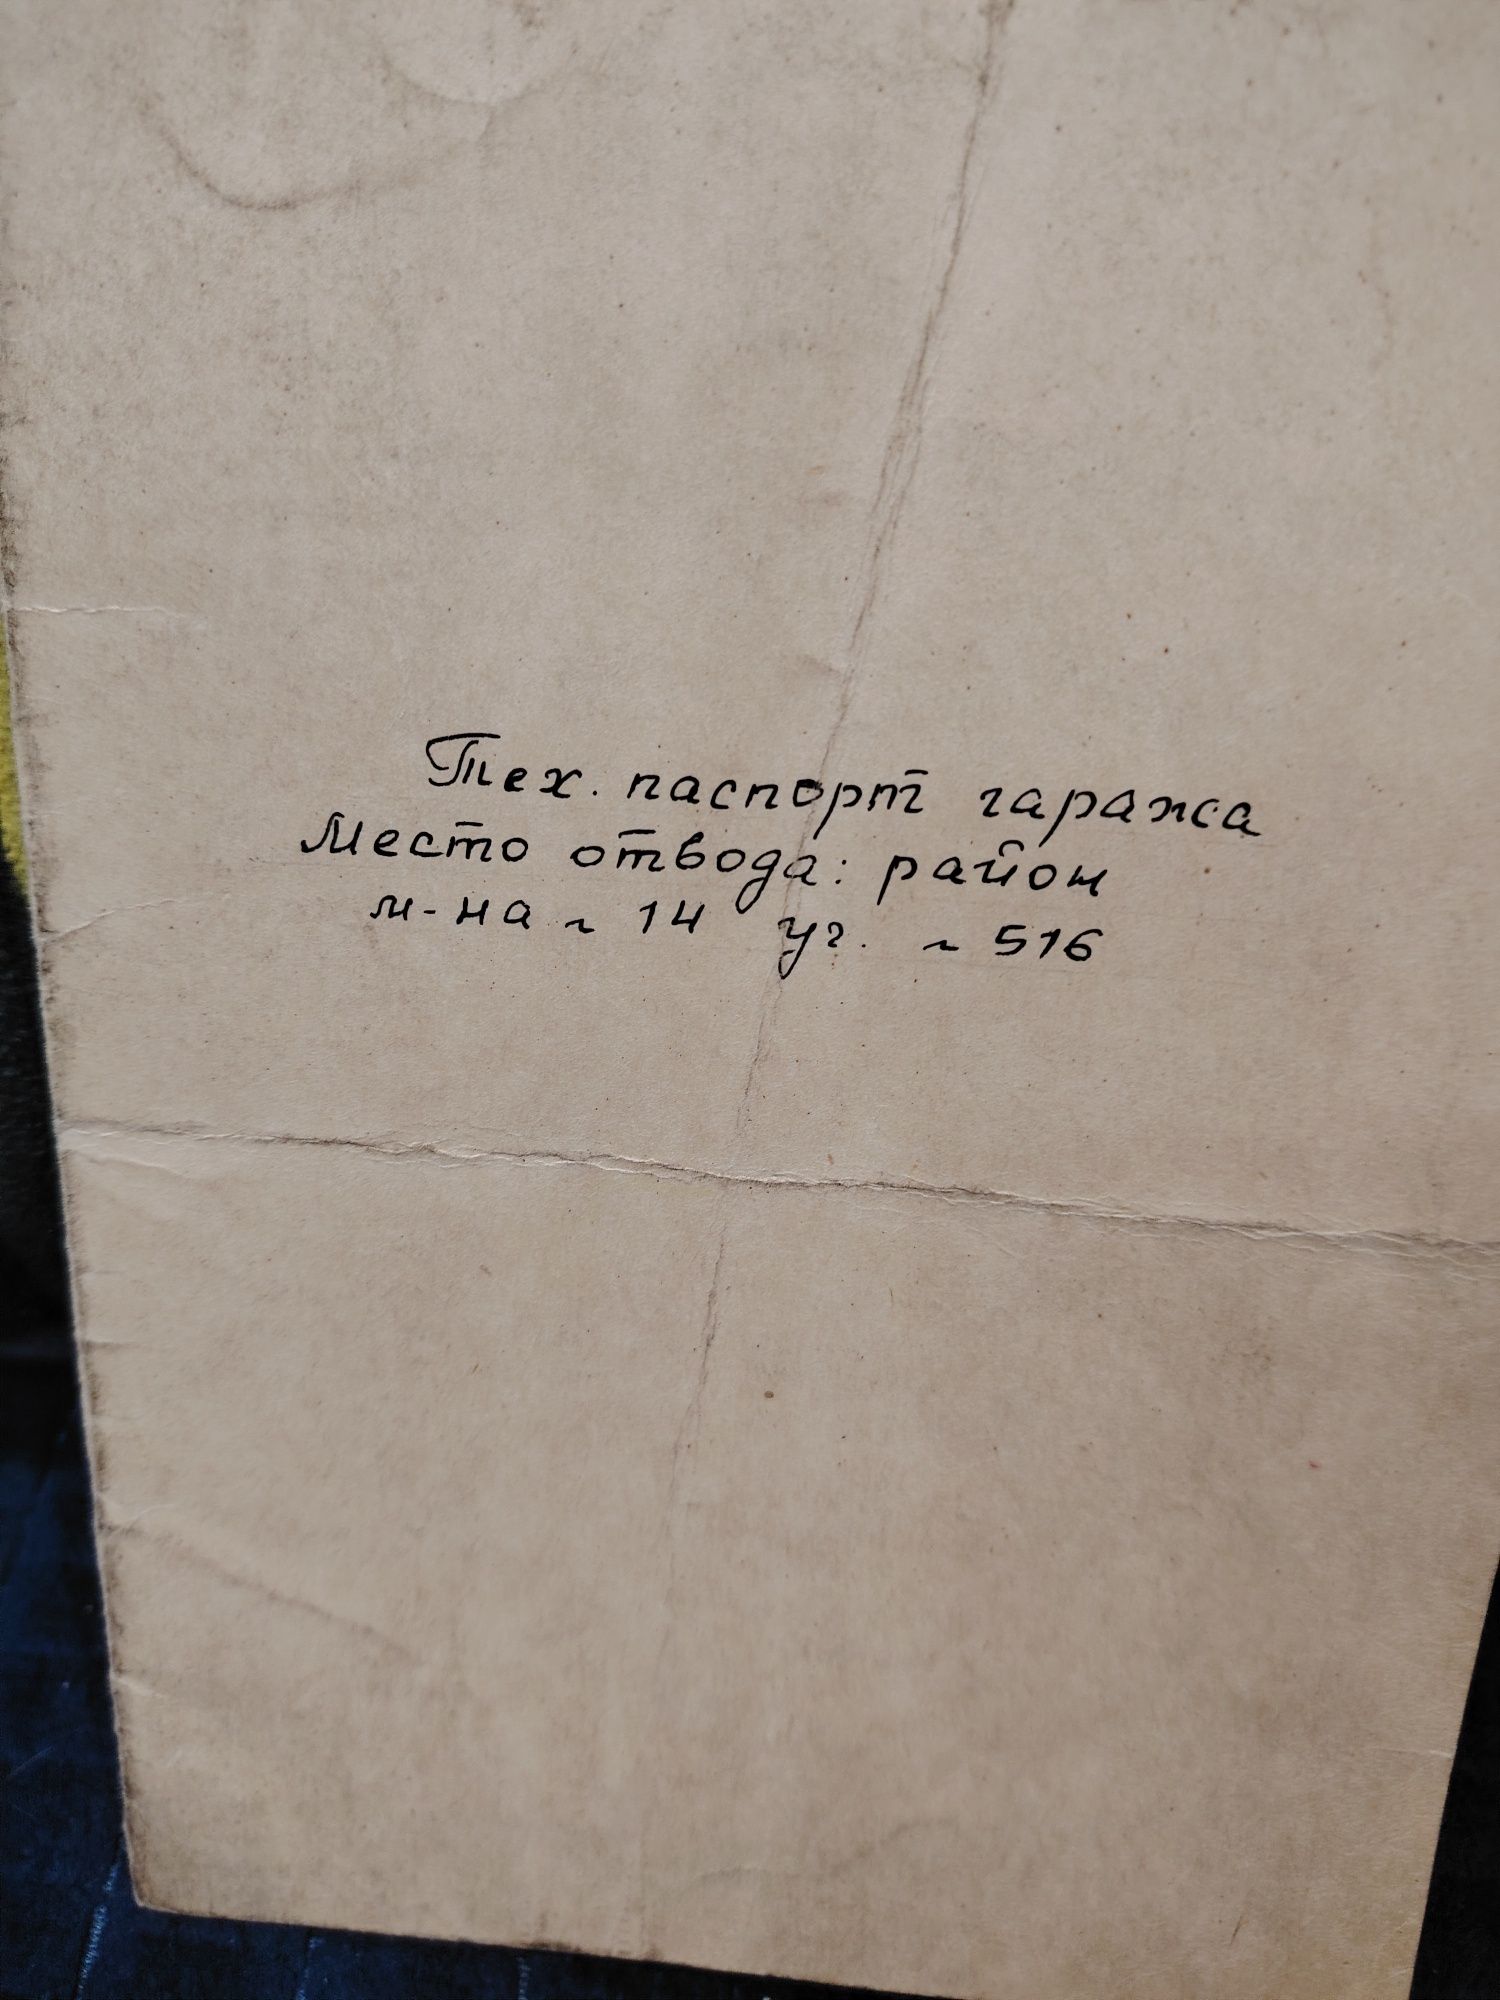 Тех. паспорт гаража
Место отвода: район
м-на ~ 14 уч. ~ 516